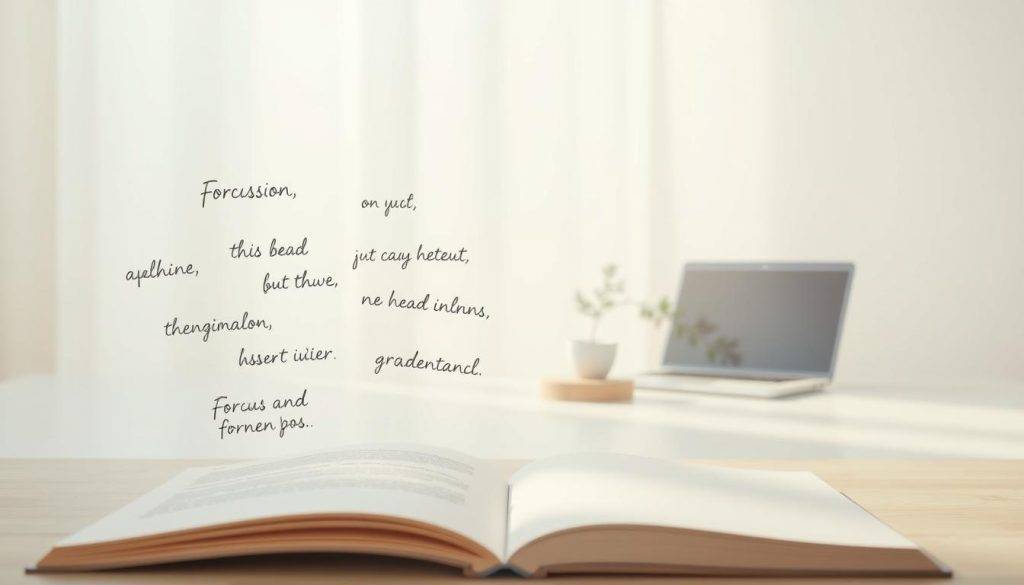 Forcussion,
on yuct,
this bead
jut cauy heteut,
apelhine,
but thwe,
ne head inlnns,
thengimalon,
hssert iuier.
gradentancl.
Forcus and
fornen pos..